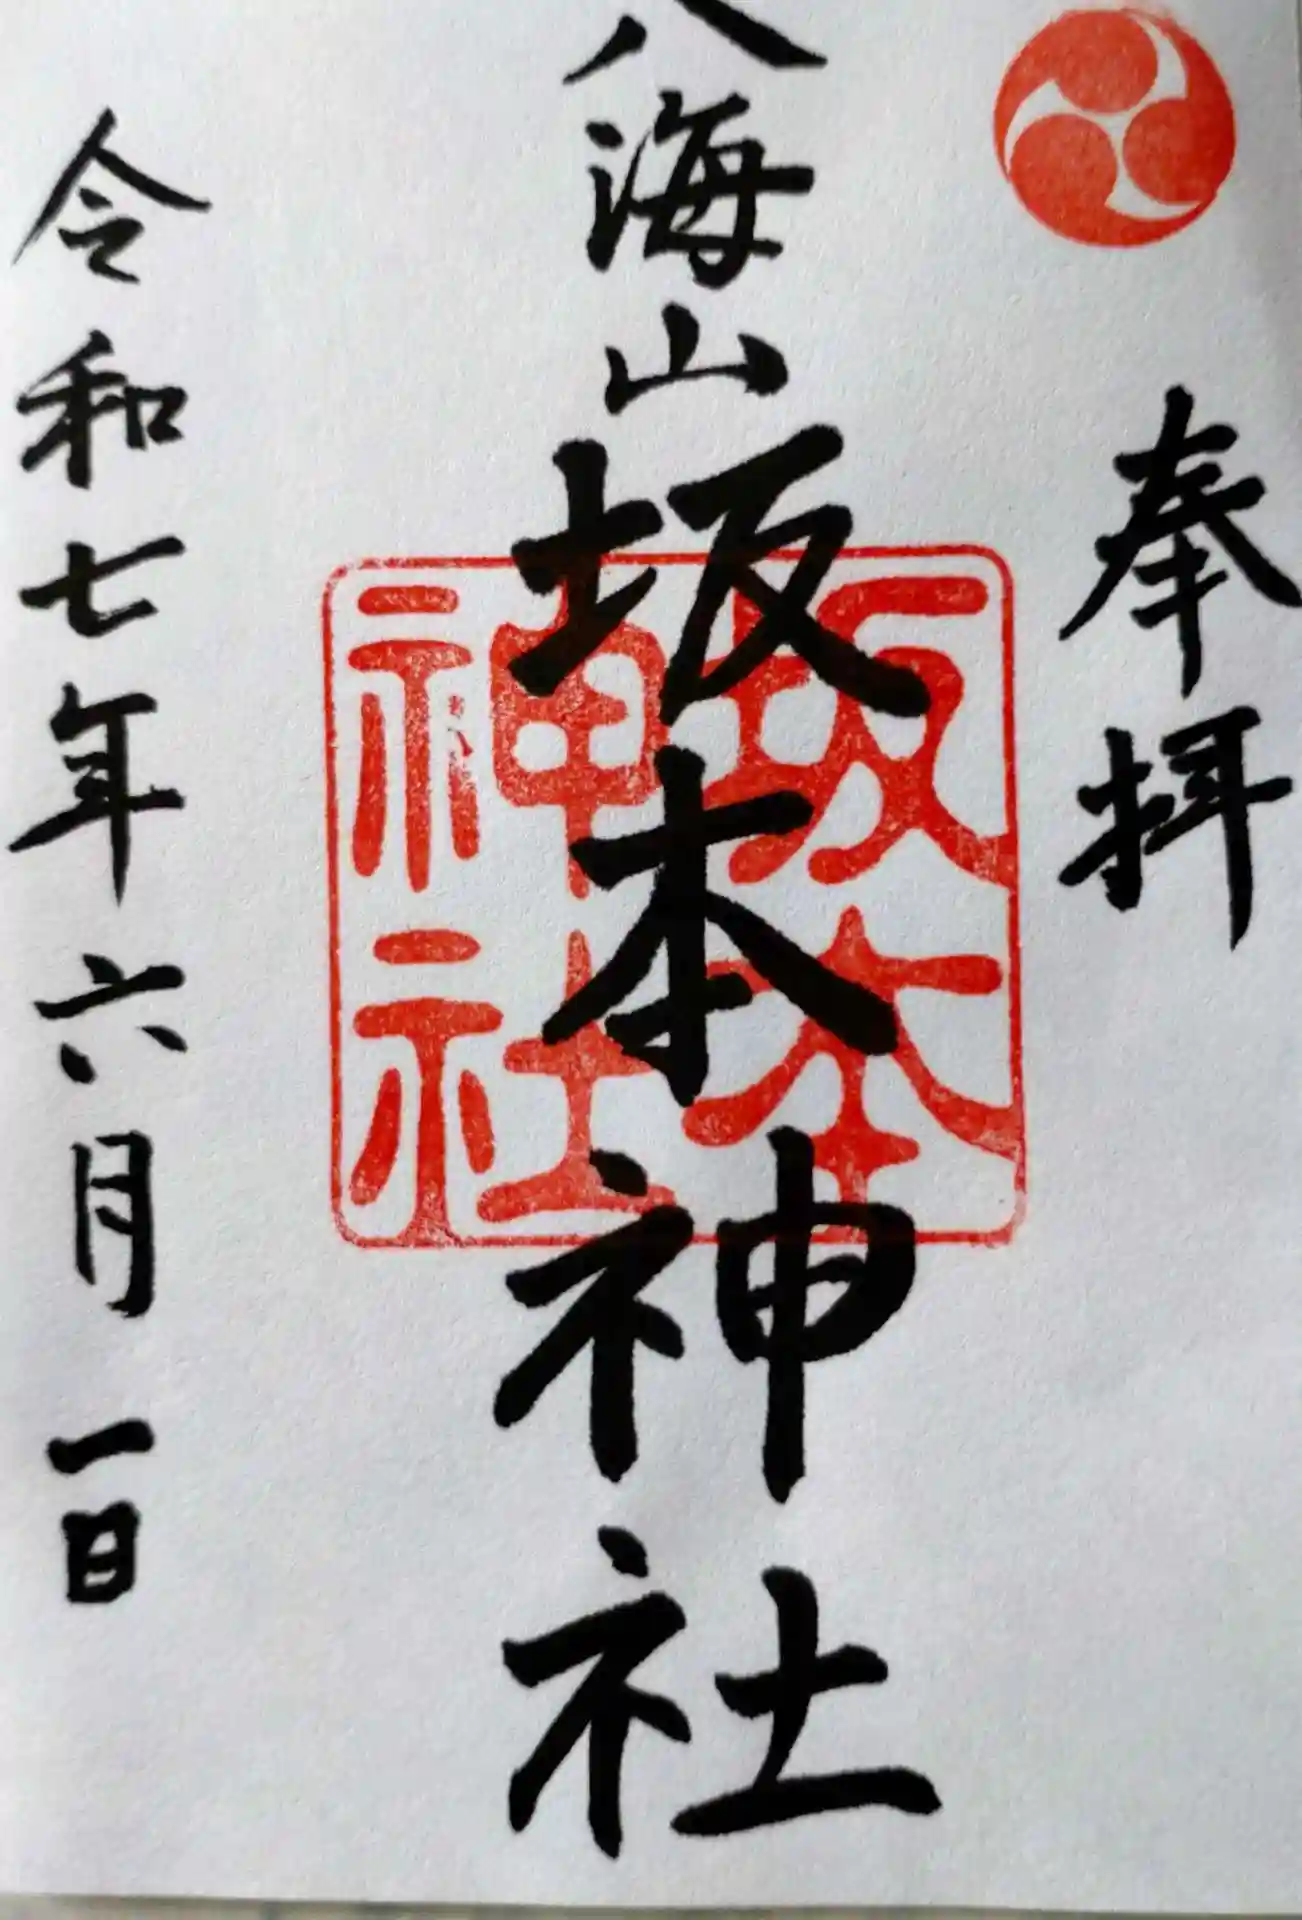 奉拝
八海山坂本神社
坂本
神社
令和七年六月一日